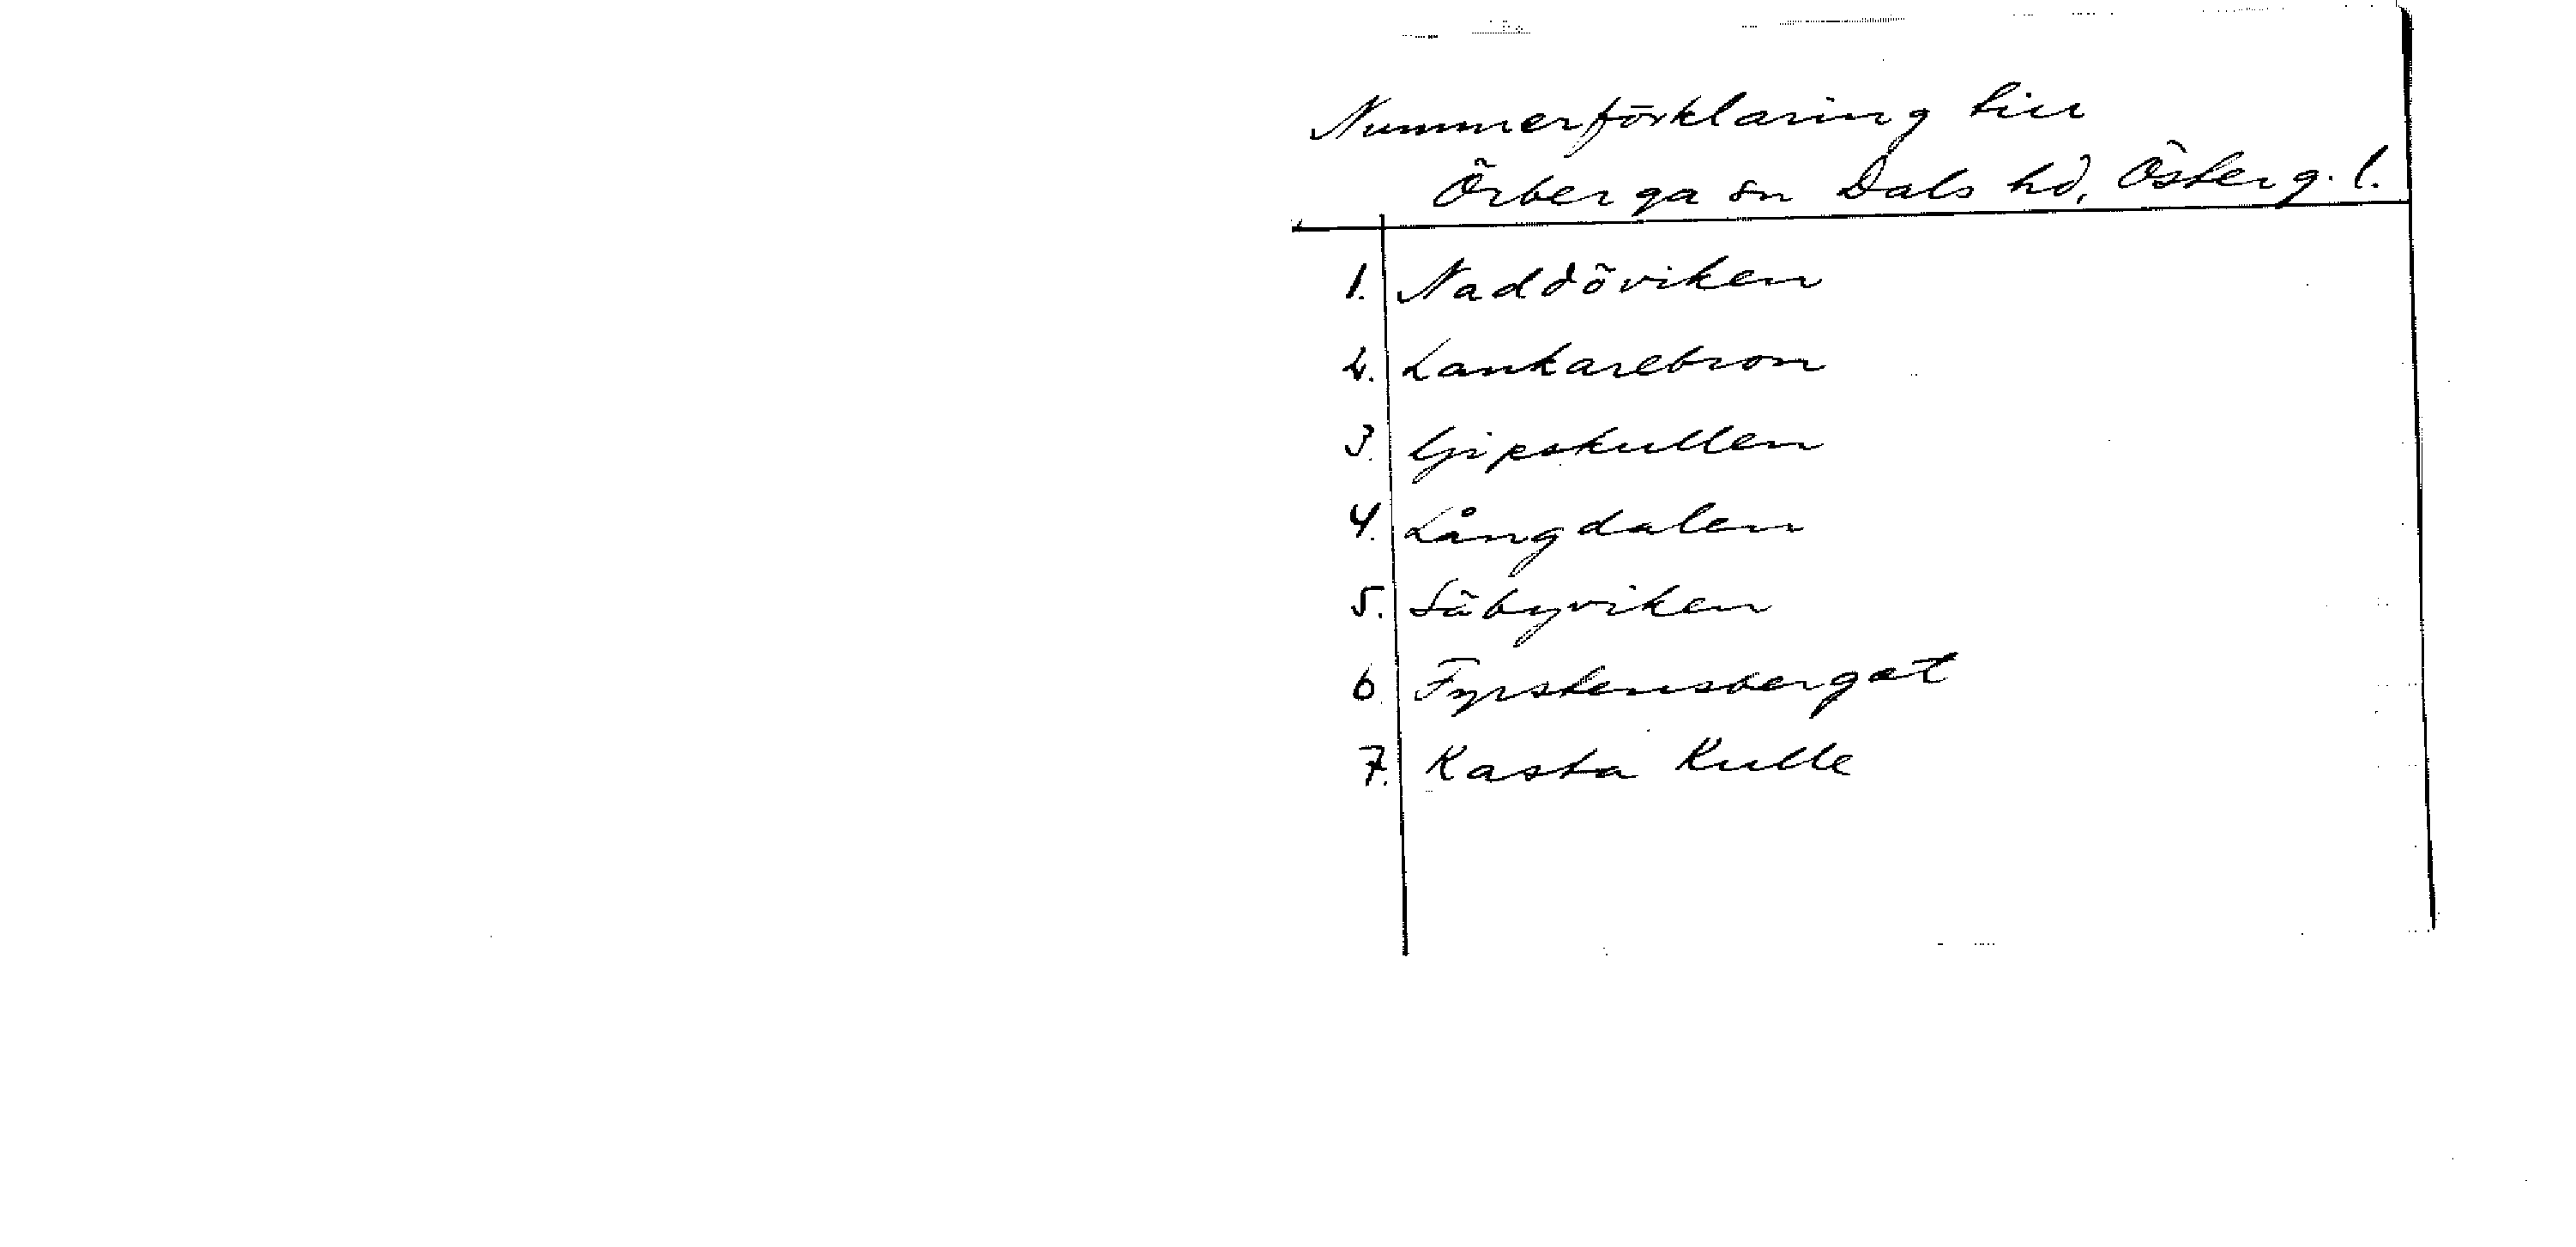 Nummerförklaring till
Örberga sn Dals hd, Österg. l.
1. Naddöviken
2. Lankarebron
3. Gipskullen
4. Långdalen
5. Säbyviken
6. Fyrstensberget
7. Kasta Kulle